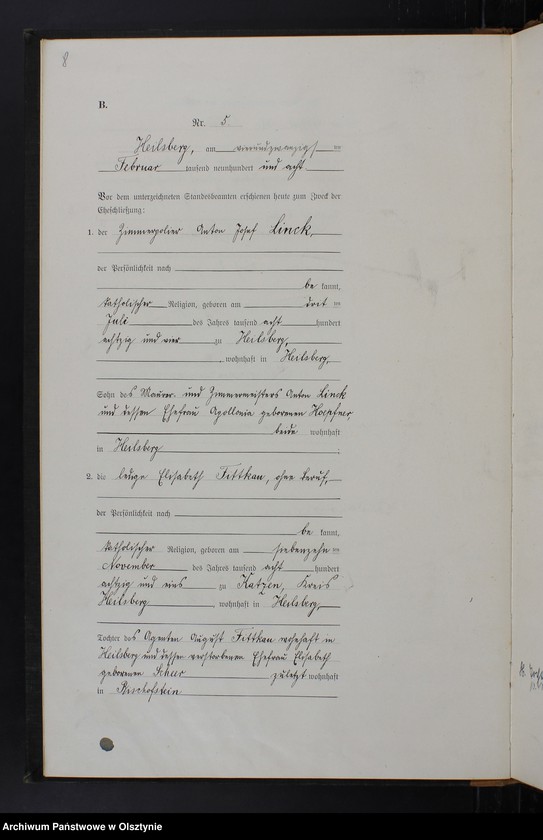 8
B.
Nr. 5.
Heilsberg, am vierundzwanzigsten
Februar tausend neunhundert und acht
Vor dem unterzeichneten Standesbeamten erschienen heute zum Zweck der
Eheschließung:
1. der Zimmerpolier Anton Josef Linck,
der Persönlichkeit nach
be kannt,
katholischer Religion, geboren am drit ten
Juli des Jahres tausend acht hundert
achtzig und vier zu Heilsberg,
, wohnhaft in Heilsberg,
Sohn des Maurer- und Zimmermeisters Anton Linck
und dessen Ehefrau Apollonia geborenen Hoepfner
beide wohnhaft
in Heilsberg
2. die ledige Elisabeth Fittkau, ohne Beruf,
der Persönlichkeit nach
be kannt,
katholischer Religion, geboren am siebenzehn ten
November des Jahres tausend acht hundert
achtzig und eins zu Katzen, Kreis
Heilsberg, wohnhaft in Heilsberg,
Tochter des Agenten August Fittkau wohnhaft in
Heilsberg und dessen verstorbenen Ehefrau Elisabeth
geborenen zuletzt wohnhaft
in Bischofstein
Archiwum Państwowe w Olsztynie